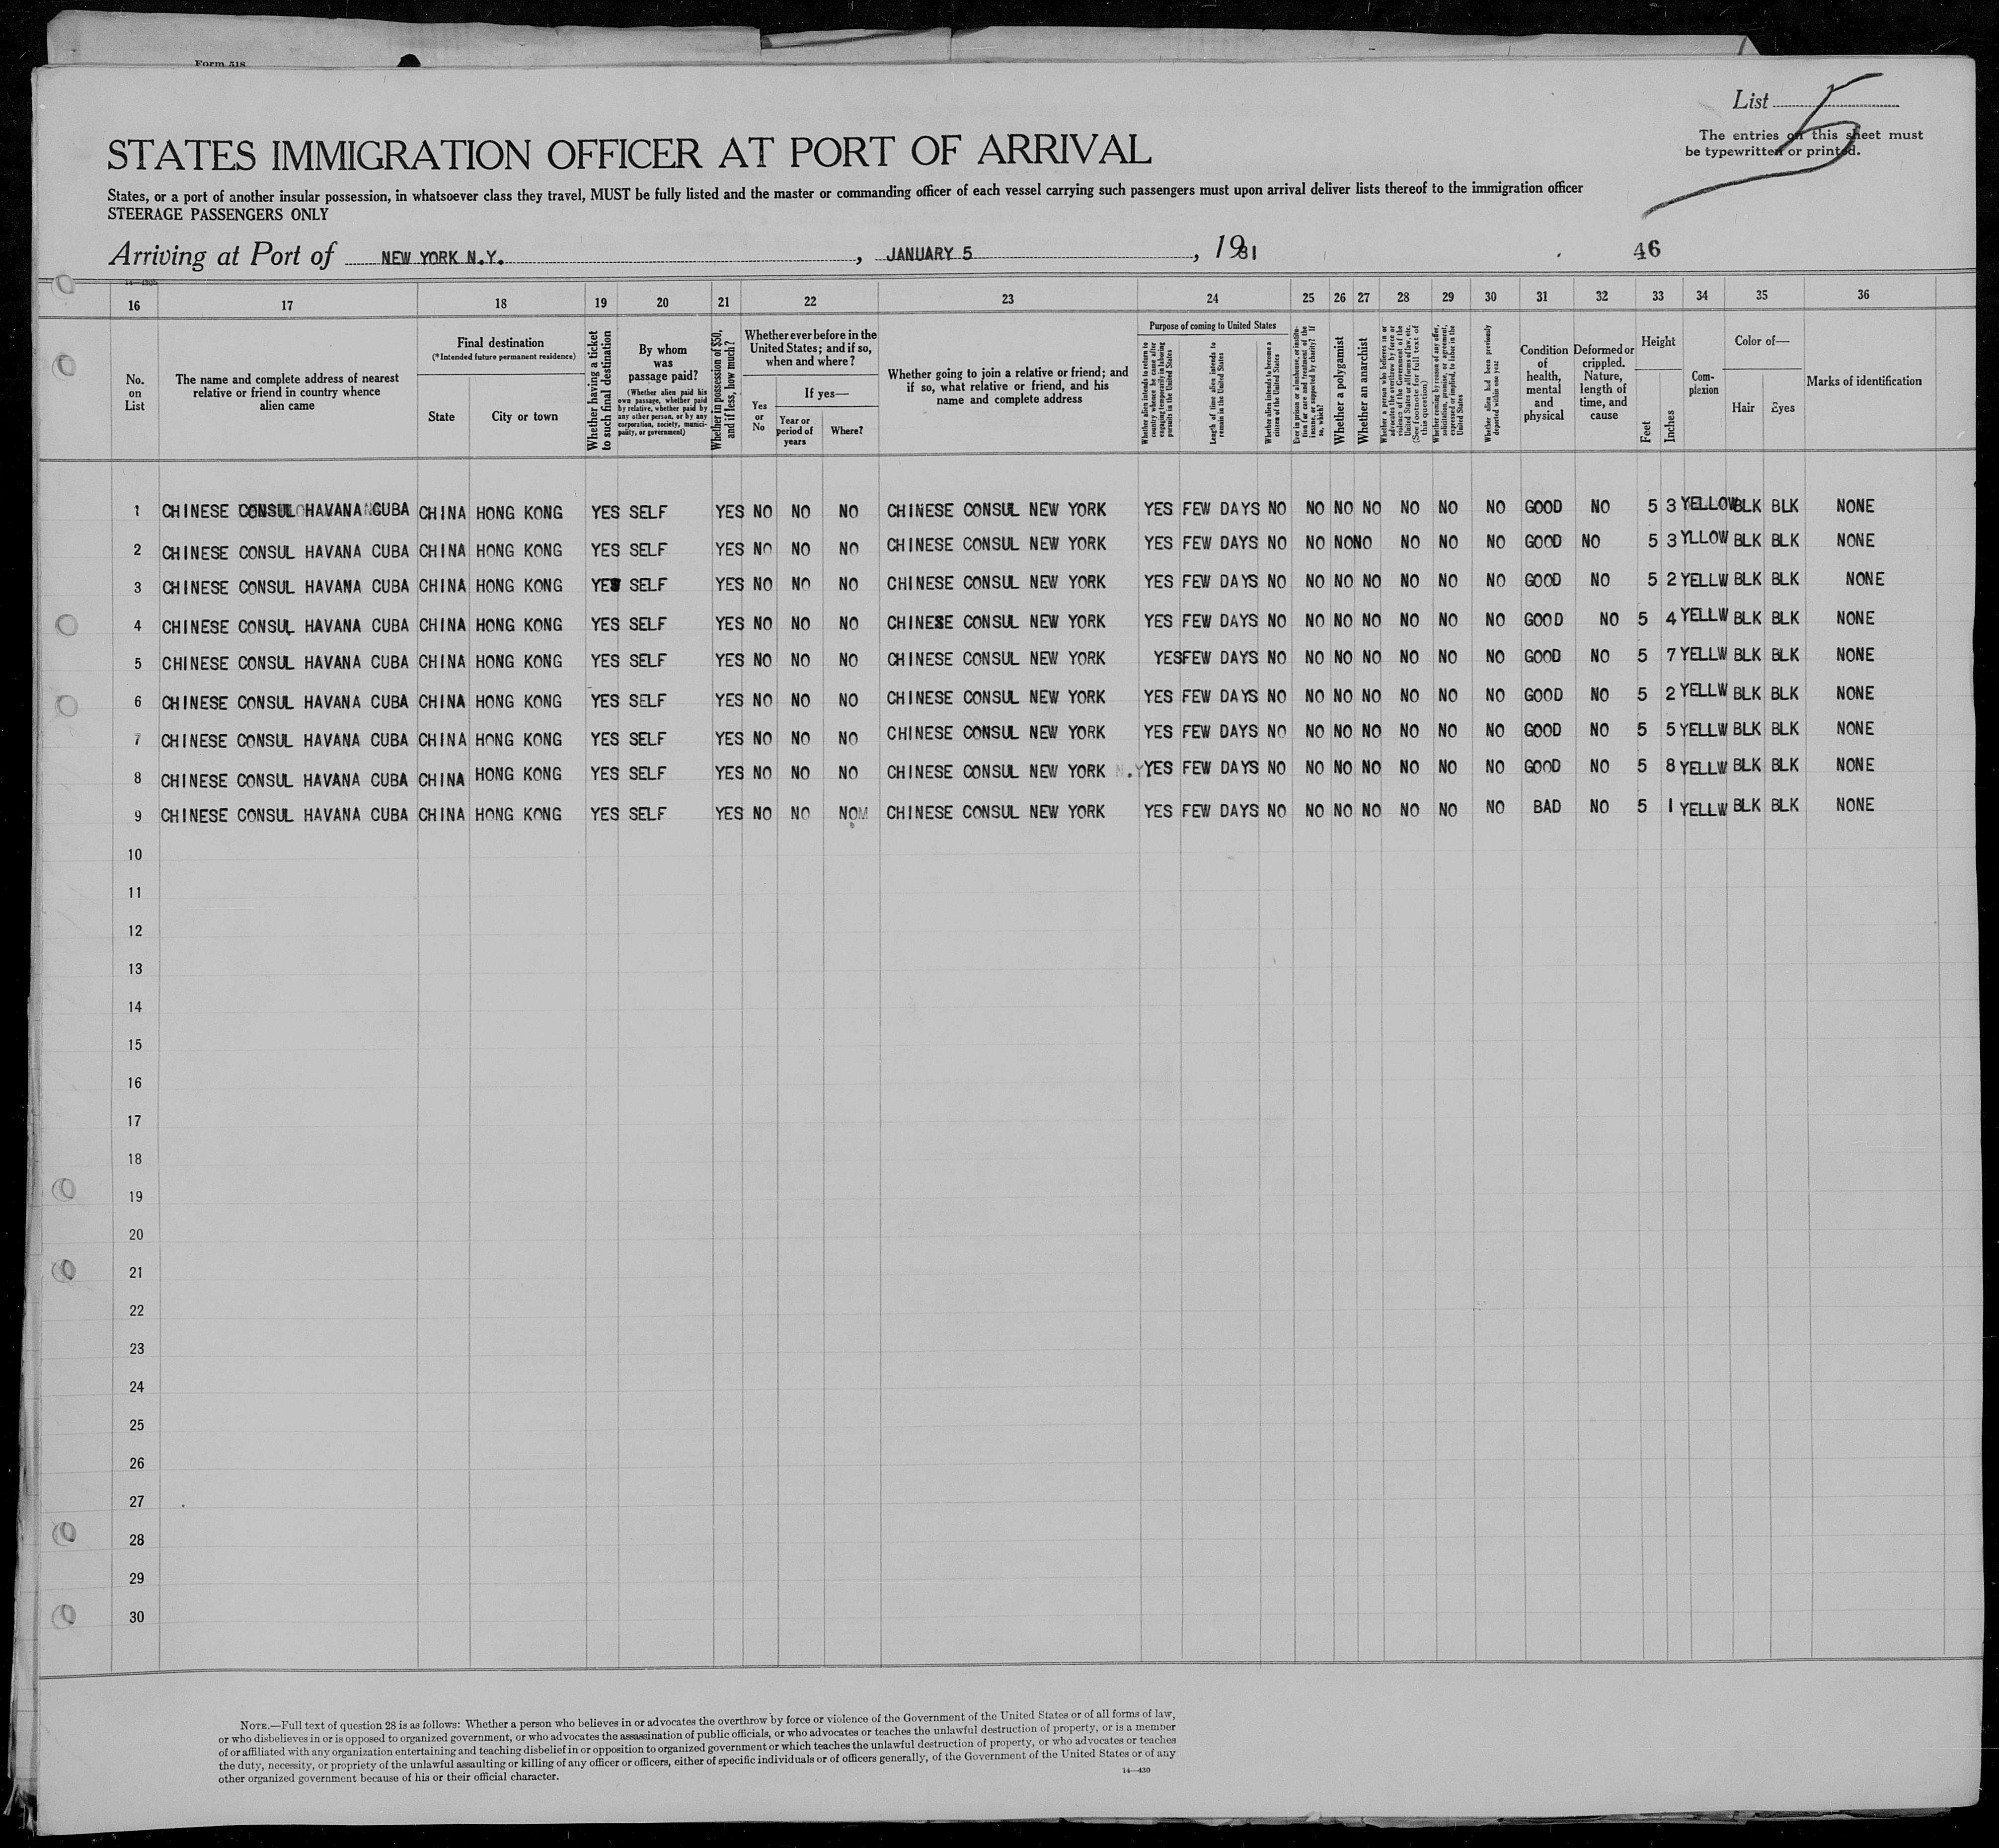 Form 518
List 5
The entries on this sheet must
be typewritten or printed.
STATES IMMIGRATION OFFICER AT PORT OF ARRIVAL
States, or a port of another insular possession, in whatsoever class they travel, MUST be fully listed and the master or commanding officer of each vessel carrying such passengers must upon arrival deliver lists thereof to the immigration officer
STEERAGE PASSENGERS ONLY
Arriving at Port of NEW YORK N.Y. , JANUARY 5 , 1931 46
16 17 18 19 20 21 22 23 24 25 26 27 28 29 30 31 32 33 34 35 36
No. on List
The name and complete address of nearest relative or friend in country whence alien came
Final destination
(*Intended future permanent residence)
State
City or town
Whether having a ticket to such final destination
By whom was passage paid?
(Whether alien paid his own passage, whether paid by relative, whether paid by any other person, or by any corporation, society, municipality, or government)
Whether in possession of $50, and if less, how much?
Whether ever before in the United States; and if so, when and where?
Yes or No
If yes—
Year or period of years
Where?
Whether going to join a relative or friend; and if so, what relative or friend, and his name and complete address
Purpose of coming to United States
Whether alien intends to return to country whence he came after engaging temporarily in laboring pursuits in the United States
Length of time alien intends to remain in the United States
Whether alien intends to become a citizen of the United States
Ever in prison or almshouse, or institution for care and treatment of the insane, or supported by charity? If so, which?
Whether a polygamist
Whether an anarchist
Whether a person who believes in or advocates the overthrow by force or violence of the Government of the United States or all forms of law, etc. (See footnote for full text of this question)
Whether coming by reason of any offer, solicitation, promise, or agreement, expressed or implied, to labor in the United States
Whether alien had been previously deported within one year
Condition of health, mental and physical
Deformed or crippled. Nature, length of time, and cause
Height
Feet
Inches
Com-plexion
Color of—
Hair
Eyes
Marks of identification
1 CHINESE CONSUL HAVANA CUBA CHINA HONG KONG YES SELF YES NO NO NO CHINESE CONSUL NEW YORK YES FEW DAYS NO NO NO NO NO NO NO GOOD NO 5 3 YELLOW BLK BLK NONE
2 CHINESE CONSUL HAVANA CUBA CHINA HONG KONG YES SELF YES NO NO NO CHINESE CONSUL NEW YORK YES FEW DAYS NO NO NO NO NO NO NO GOOD NO 5 3 YLLOW BLK BLK NONE
3 CHINESE CONSUL HAVANA CUBA CHINA HONG KONG YES SELF YES NO NO NO CHINESE CONSUL NEW YORK YES FEW DAYS NO NO NO NO NO NO NO GOOD NO 5 2 YELLW BLK BLK NONE
4 CHINESE CONSUL HAVANA CUBA CHINA HONG KONG YES SELF YES NO NO NO CHINESE CONSUL NEW YORK YES FEW DAYS NO NO NO NO NO NO NO GOOD NO 5 4 YELLW BLK BLK NONE
5 CHINESE CONSUL HAVANA CUBA CHINA HONG KONG YES SELF YES NO NO NO CHINESE CONSUL NEW YORK YES FEW DAYS NO NO NO NO NO NO NO GOOD NO 5 7 YELLW BLK BLK NONE
6 CHINESE CONSUL HAVANA CUBA CHINA HONG KONG YES SELF YES NO NO NO CHINESE CONSUL NEW YORK YES FEW DAYS NO NO NO NO NO NO NO GOOD NO 5 2 YELLW BLK BLK NONE
7 CHINESE CONSUL HAVANA CUBA CHINA HONG KONG YES SELF YES NO NO NO CHINESE CONSUL NEW YORK YES FEW DAYS NO NO NO NO NO NO NO GOOD NO 5 5 YELLW BLK BLK NONE
8 CHINESE CONSUL HAVANA CUBA CHINA HONG KONG YES SELF YES NO NO NO CHINESE CONSUL NEW YORK N.Y YES FEW DAYS NO NO NO NO NO NO NO GOOD NO 5 8 YELLW BLK BLK NONE
9 CHINESE CONSUL HAVANA CUBA CHINA HONG KONG YES SELF YES NO NO NO CHINESE CONSUL NEW YORK YES FEW DAYS NO NO NO NO NO NO NO BAD NO 5 1 YELLW BLK BLK NONE
10
11
12
13
14
15
16
17
18
19
20
21
22
23
24
25
26
27
28
29
30
NOTE.—Full text of question 28 is as follows: Whether a person who believes in or advocates the overthrow by force or violence of the Government of the United States or of all forms of law,
or who disbelieves in or is opposed to organized government, or who advocates the assassination of public officials, or who advocates or teaches the unlawful destruction of property, or is a member
of or affiliated with any organization entertaining and teaching disbelief in or opposition to organized government or which teaches the unlawful destruction of property, or who advocates or teaches
the duty, necessity, or propriety of the unlawful assaulting or killing of any officer or officers, either of specific individuals or of officers generally, of the Government of the United States or of any
other organized government because of his or their official character.
14—430